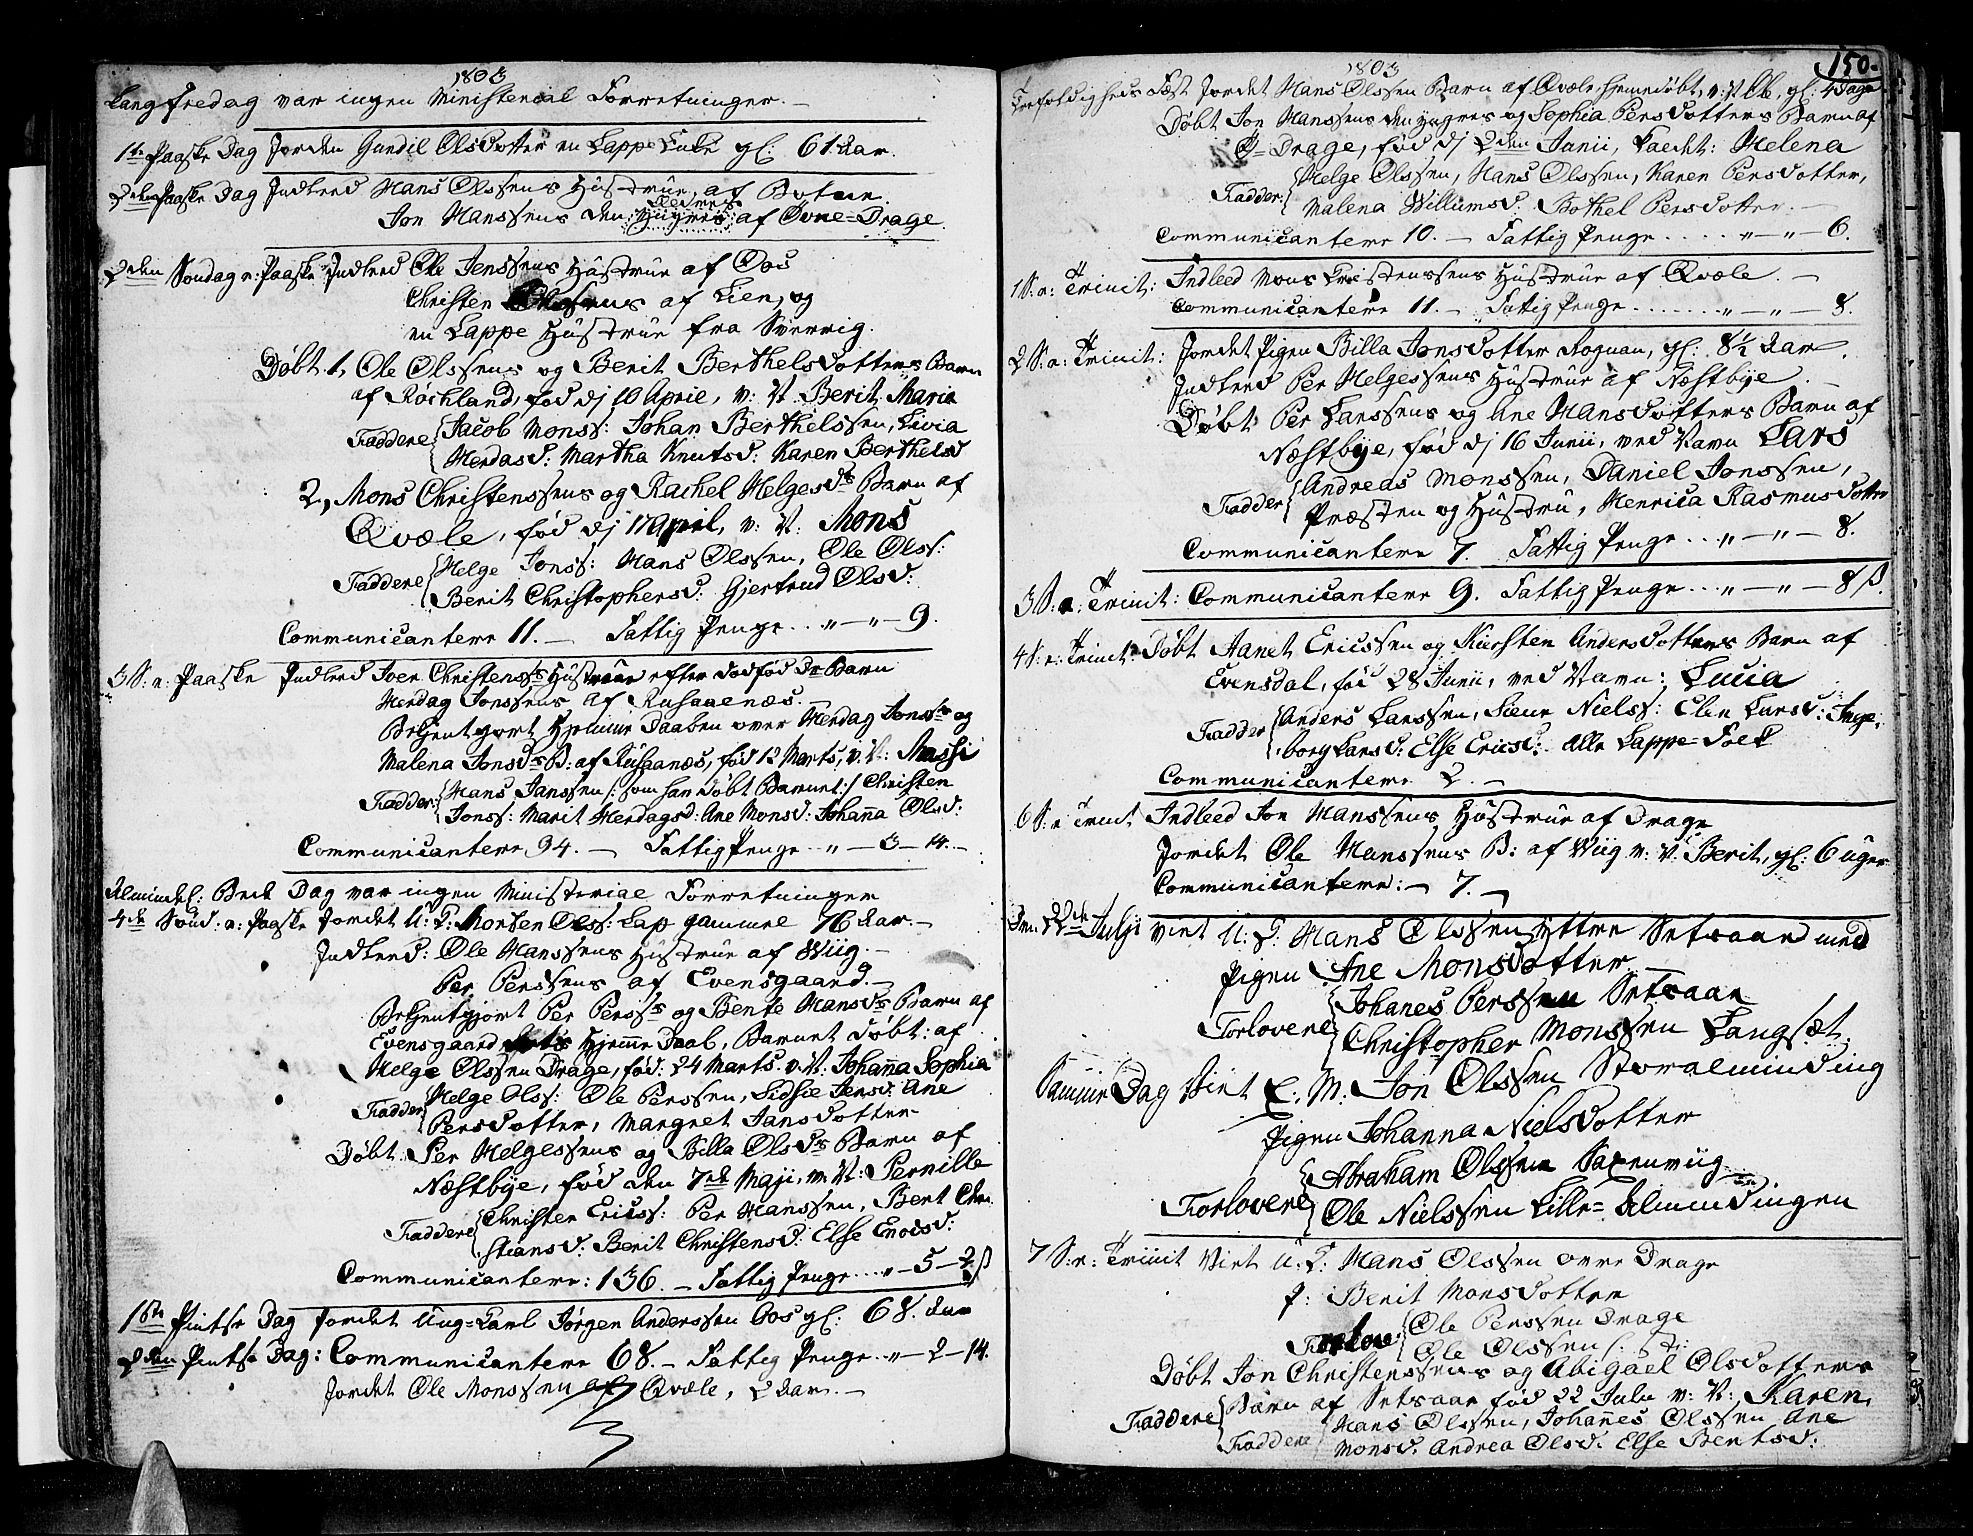 1803
Langfredag var ingen Ministerial Forretninger. —
1ste Paaske Dag Jorden Gundil Olsdotter en Lappe gl: 61 Aar.
2den Paaske Dag Indleed Hans Olssens Hüstrüe, af Botne
Jon Hanssens den: Yngres: af Øvne=Drage.
2den Søndag e: Paaske Indleed Ole Jenssens Hüstrüe af Oos
Christen af Lien, og
en Lappe Hüstrüe fra Sverrig.
Døbt 1, Ole Olssens og Berit Berthelsdotters Barn
af Røchland, fød dj 10 Aprie, v: N. Berit Maria
Faddere Jacob Monss: Johan Berthelssen, Livia
Herdasd: Martha Knutsd: Karen Berthelsd
2, Mons Christenssens og Rachel Helgesds Barn af
Qvæle, fød dj 17 April, v: N: Mons
Faddere Helge Jonss: Hans Olssen, Ole Olss:
Berit Christophersd: Gjertrud Olsd:
Communicantere 11. — Fattig Penge . . „ — „ — 9.
3 S: e: Paaske Indleed Iver Christenss Hüstrüe efter dødfød Barn
Herdag Jonssens af Rusaaenæs.
Bekjentgjort Hjemme Daaben over Herdag Jonss og
Malena Jonsds B: af Rüsaanæs, fød 12 Marts, v: N:
Fadder: Hans Janssen /: som har døbt Barnet :/ Christen
Jonss: Marit Herdagsd: Ane Monsd: Johanna Olsd:
Communicantere 94. — Fattig Penge „ — 3 — 14. —
Almindel: Bede Dag var ingen Ministeriae Forretninger
4de Sønd: e: Paaske Jordet U: K: Morten Olss: Lap gammel 76 Aar. —
Indleed: Ole Hanssens Hüstrüe af Wiig —
Per Perssens af Evensgaard. —
Bekjentgjort Per Perss og Bente Hansds Barn af
Evensgaard Hjemme Daab, Barnet døbt: af
Helge Olssen Drage, fød: 24 Marts. v: N: Johanna Sophia
Fadder Helge Olss: Ole Perssen, Sidsce Jensd: Ane
Persdotter, Margret Jansdotter
Døbt Per Helgessens og Billa Olsds Barn af
Næstbye, fød den 7de Maji, v: N: Pernille
Faddere Christen Ericss: Per Hanssen, Berit Chri
stiansd: Berit Christensd: Else Ericsd:
Communicantere: 136. — Fattig Penge . . . „ — 5 — 2 ß
1ste Pintse Dag Jordet Ung=Karl Jørgen Anderssen Oos gl: 68. Aar
2den Pintse Dag: Communicantere 68. — Fattig Penge. „ — 2 — 14.
Jordet Ole Monssen af Qvæle, 2 Aar. —
150.
1803
Trefoldigheds Fæst Jordet Hans Olssen Barn af Qvæle, hjemedøbt, v: N Ole, gl: 4 Dage
Døbt Jon Hanssens den Yngres og Sophia Persdotters Barn af
Ø=Drage, fød dj 2den Junii, kaldet: Helena
Fadder: Helge Olssen, Hans Olssen, Karen Persdotter,
Malena Willumsd. Bothel Persdotter. —
Communicantere 10. — Fattig Penge . . . . „ — „ — 6.
1 S: e: Trinit: Indleed Mons Kristenssens Hüstrüe af Qvæle. —
Communicantere 11. — Fattig Penge . . . . . . „ — „ — 8.
2 S: e: Trinit: Jordet Pigen Billa Jonsdotter Rognan, gl: 8½ Aar.
Indleed Per Helgessens Hüstrüe af Næstbye. —
Døbt Per Larssens og Ane Hansdotters Barn af
Næstbye, fød dj 16 Junii, ved Navn Lars
Fadder Andreas Monssen, Daniel Jonssen,
Præsten og Hüstrü, Henrica Rasmusdotter
Communicantere 7. Fattig Penge . . „ — „ — 8.
3 S: e: Trinit: Communicantere 9. Fattig Penge . . . „ — „ — 8 ß.
4 S: e: Trinit: Døbt Aanet Ericssen og Kirsten Andersdotters Barn af
Evensdal, fød 28 Junii, ved Navn: Lucia
Fadder Anders Larssen, Niels: Elen Larsd: Inge
borg Larsd: Else Ericsd: Alle Lappe=Folk
Communicantere 2. —
6 S: e Trinit Indleed Jon Hanssens Hüstrüe af Drage
Jordet Ole Hanssens B: af Wiig v: N: Berit, gl: 6 uger
Communicantere: — 7. —
Den 22de Julji viet U: K: Hans Olssen Yttre Setsaae med
Pigen Ane Monsdotter —
Forlovere Johanes Perssen Setsaae
Christopher Monssen Langsæt.
Samme Dag Viet E. M. Jon Olssen Storalminding
Pigen Johanna Nielsdotter
Forlovere Abraham Olssen Saxenviig
Ole Nielssen Lille=Almindingen
7 S: e: Trinit Viet U: K: Hans Olssen øvre Drage
P: Berit Monsdotter
Forlove: Ole Perssen Drage
Ole Olssen
Døbt Jon Christenssens og Abigael Olsdotters
Barn af Setsaae fød 22 Julii v: N: Karen
Faddere Hans Olssen, Johannes Olssen Ane
Faddere Monsd. Andrea Olsd: Else Bentsd: